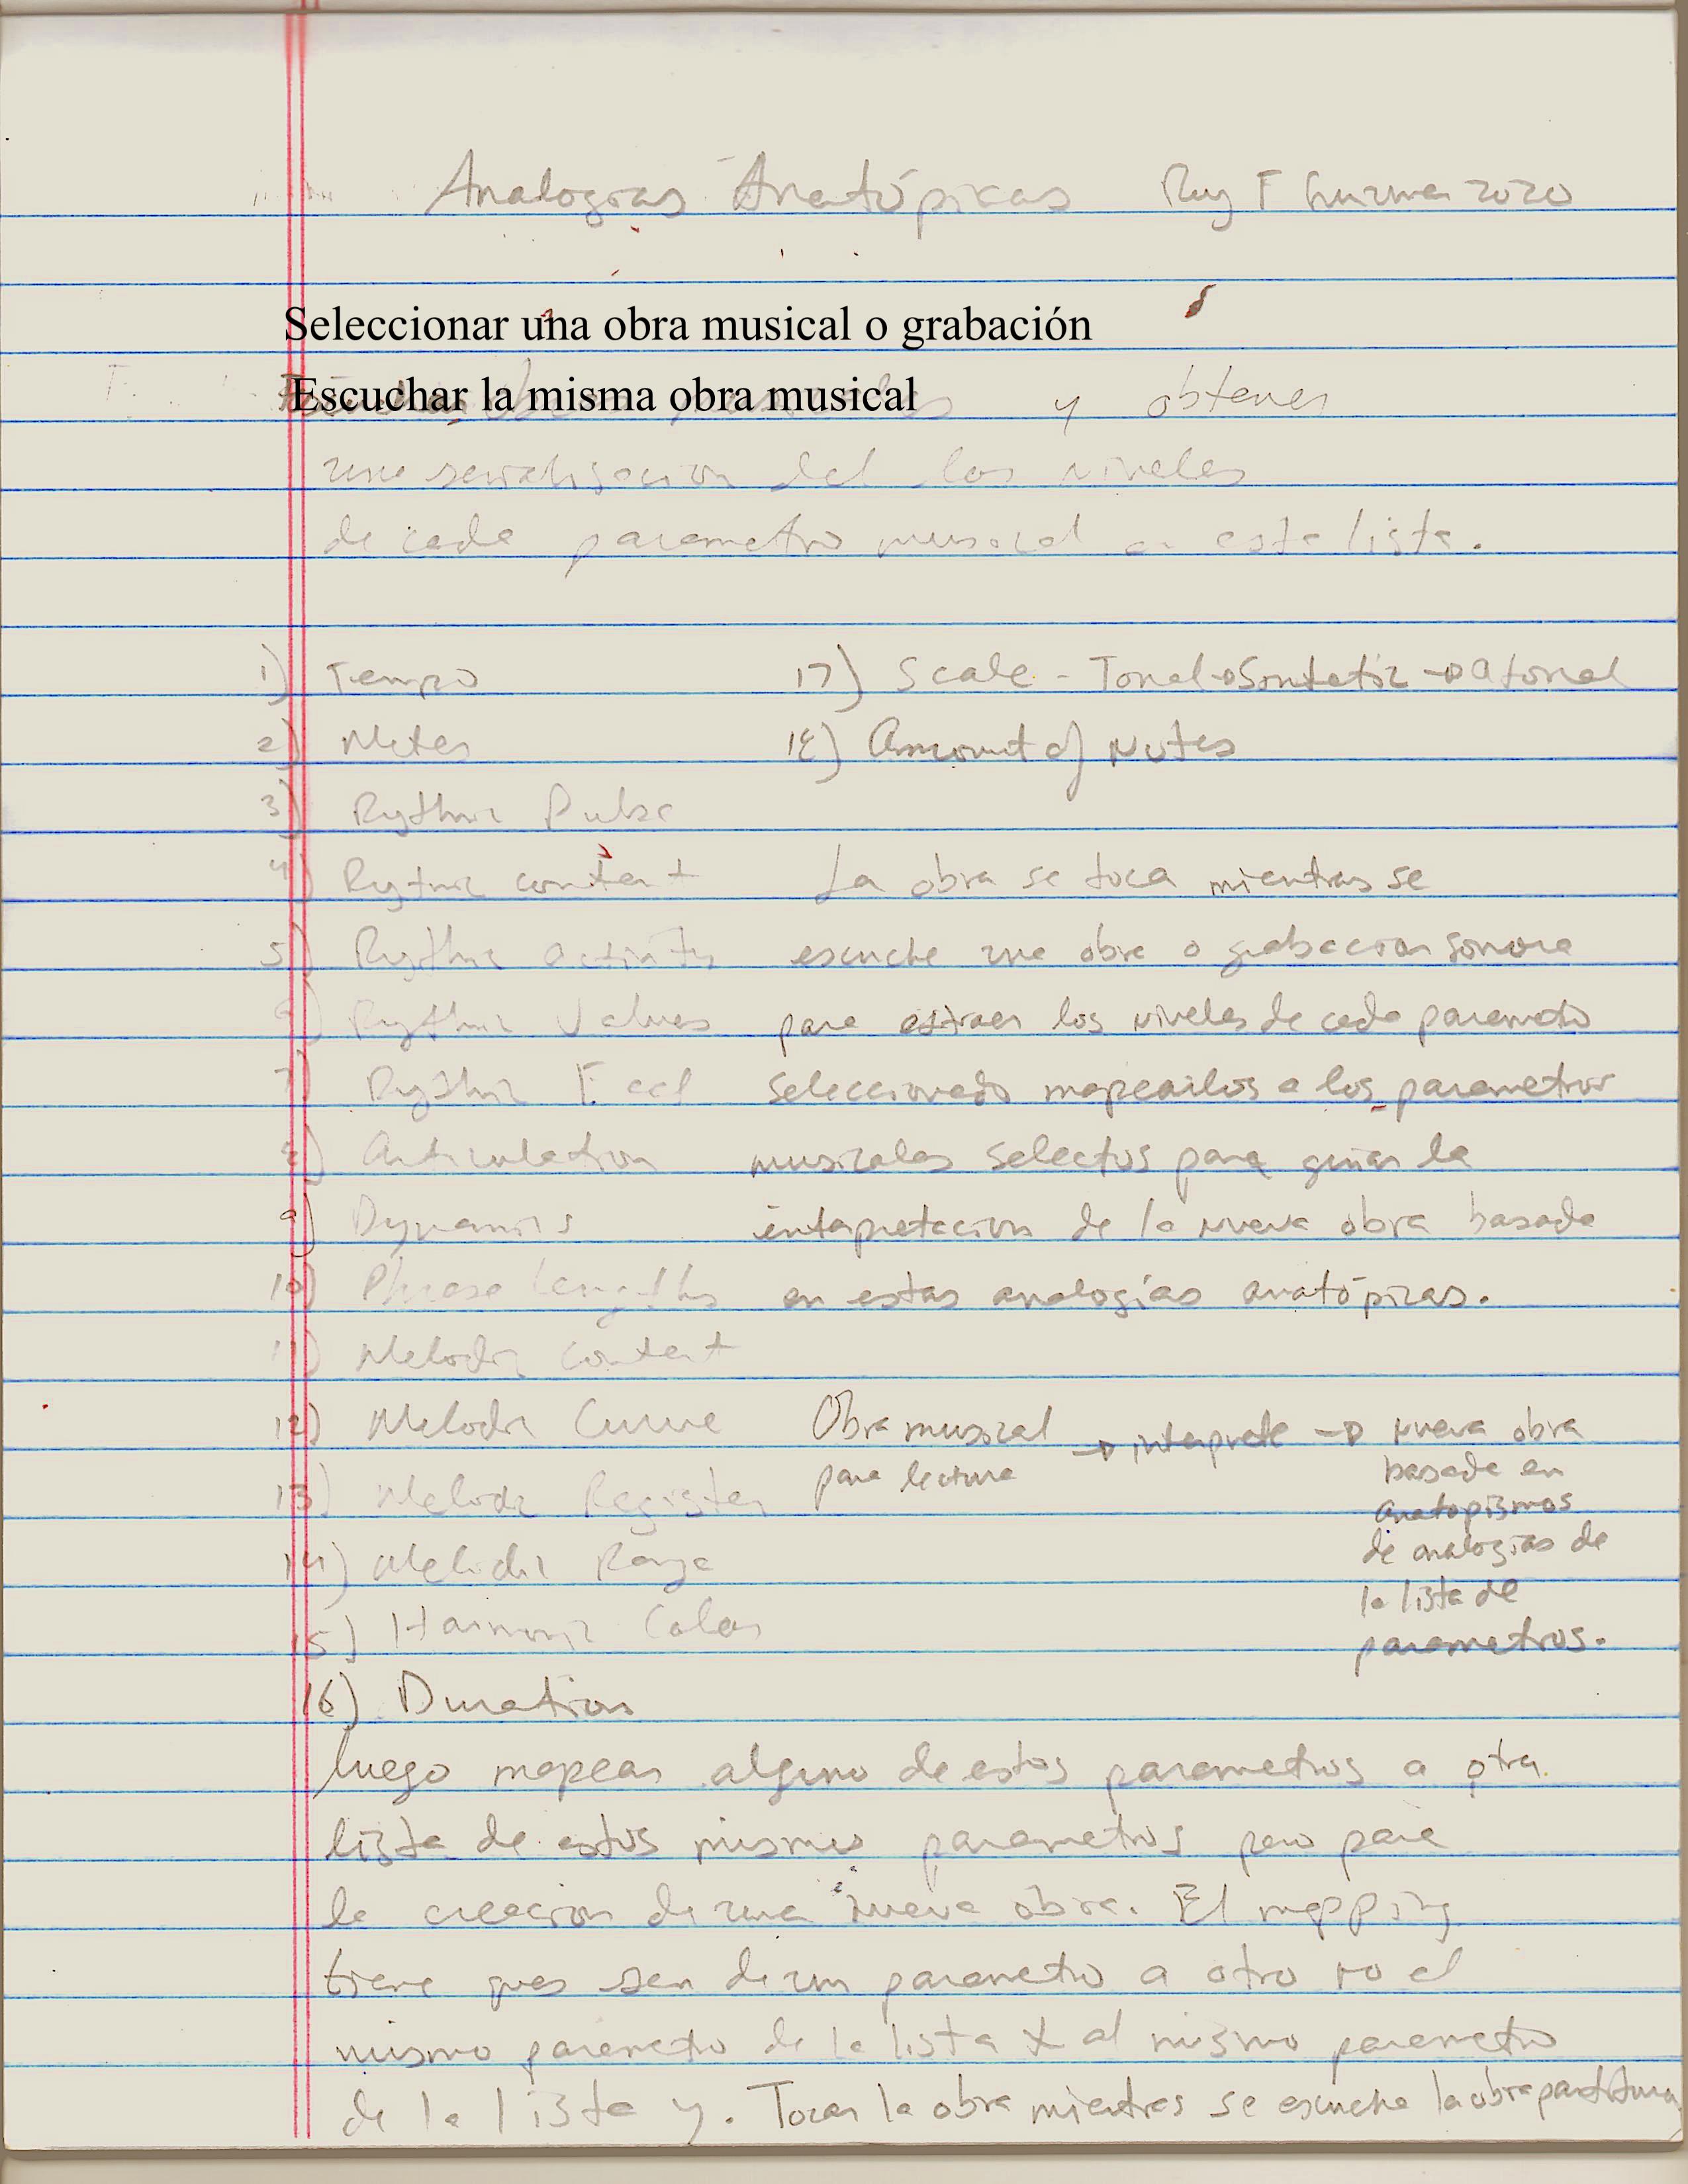 Analogias Anatópicas Ruy F Guzman 2020
Seleccionar una obra musical o grabación
Escuchar la misma obra musical y obtener
una serializacion del los niveles
de cada parametro musical en esta lista.
1) Tempo
2) Meter
3) Rythmic Pulse
4) Rytmic content
5) Rythmic activity
6) Rythmic Values
7) Rythmic Feel
8) Articulation
9) Dynamics
10) Phrase lengths
11) Melodic content
12) Melodic Curve
13) Melodic Register
14) Melodic Range
15) Harmonic Color
16) Duration
17) Scale - Tonal → Sintetic → atonal
18) Amount of Notes
La obra se toca mientras se
escuche una obra o grabacion sonora
para extraer los niveles de cada parametro
seleccionado mapearlos a los parametros
musicales selectos para guiar la
interpretacion de la nueva obra basada
en estas analogías anatópicas.
Obra musical → interprete → nueva obra
para lectura
basada en
anatopismos
de analogias de
la lista de
parametros.
luego mapear alguno de estos parametros a otra
lista de estos mismos parametros pero para
la creacion de una nueva obra. El mapping
tiene ques ser de un parametro a otro no el
mismo parametro de la lista x al mismo parametro
de la lista y. Tocar la obra mientras se escucha la obra partitura